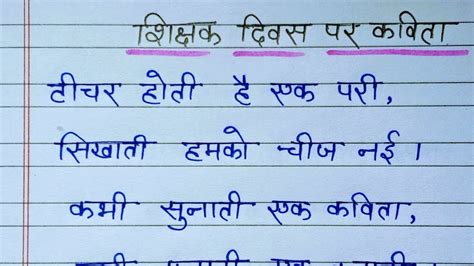 शिक्षक दिवस पर कविता
टीचर होती है एक परी,
सिखाती हमको चीज नई ।
कभी सुनाती एक कविता,